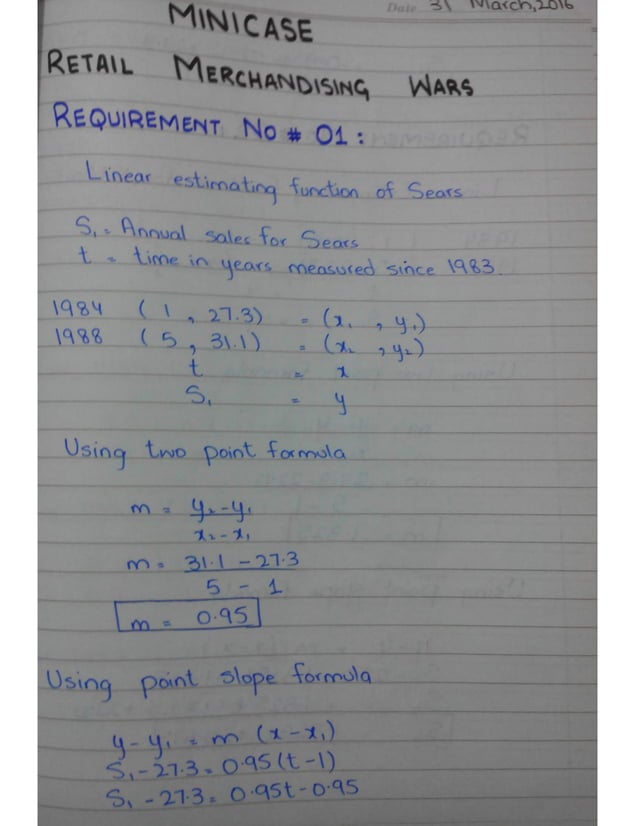 Date 31 March, 2016
MINICASE
RETAIL MERCHANDISING WARS
REQUIREMENT No # 01 :
Linear estimating function of Sears
S₁ = Annual sales for Sears
t = time in years measured since 1983.
1984 ( 1 , 27.3) = (x₁ , y₁)
1988 ( 5 , 31.1) = (x₂ , y₂)
t = x
S₁ = y
Using two point formula
m = y₂-y₁
x₂-x₁
m = 31.1 - 27.3
5 - 1
m = 0.95
Using point slope formula
y-y₁ = m (x-x₁)
S₁-27.3 = 0.95(t-1)
S₁ - 27.3 = 0.95t-0.95